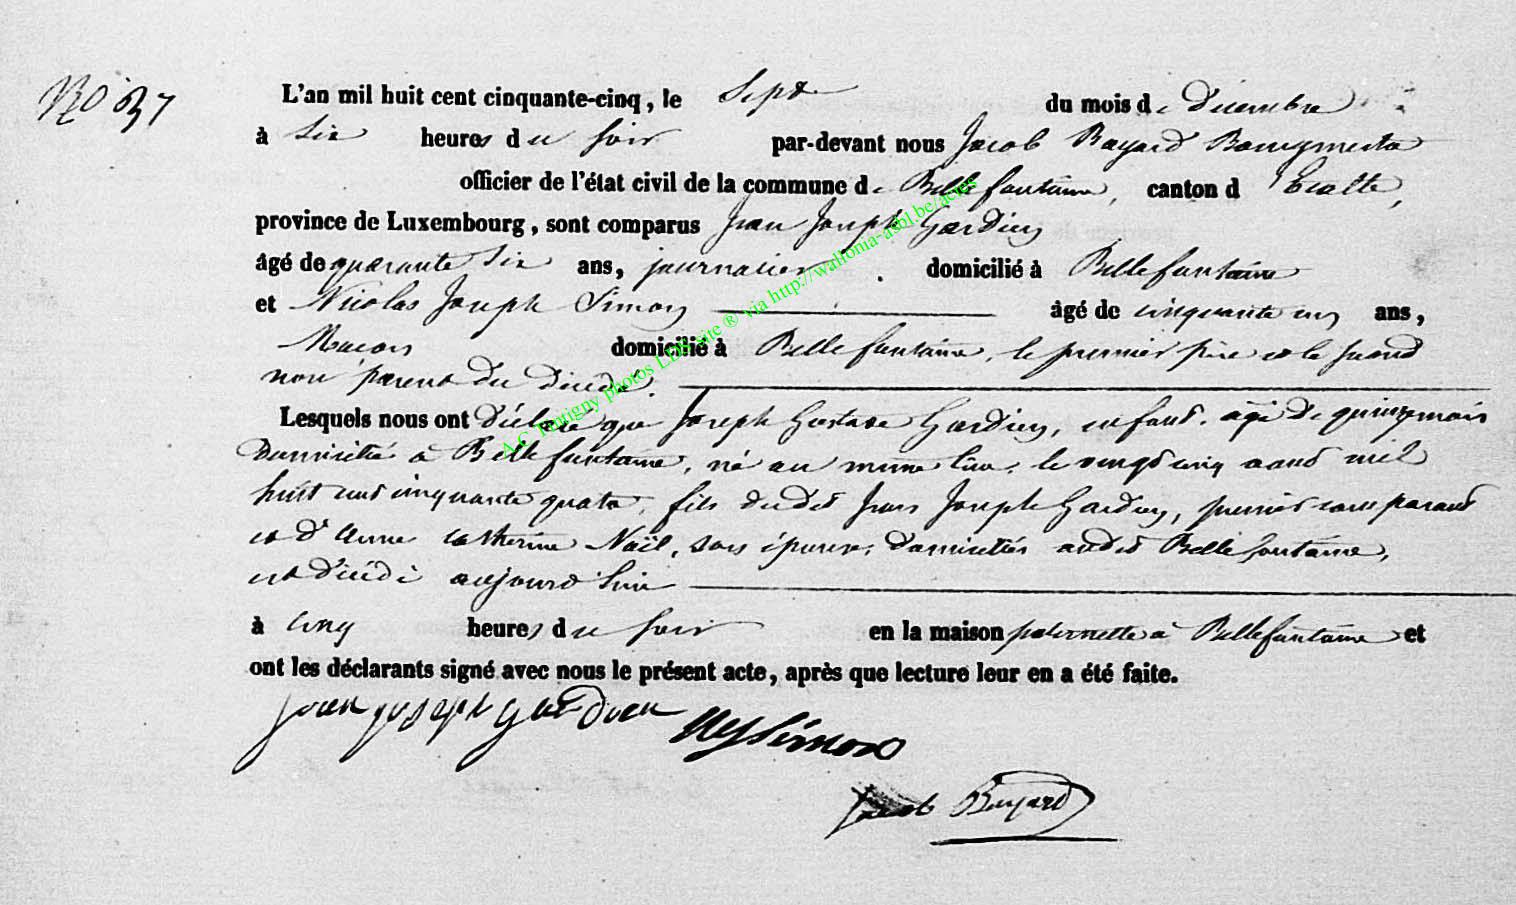 No 37
L'an mil huit cent cinquante-cinq, le Sept du mois de Décembre
à six heures du soir par-devant nous Jacob Bayard Bourgmestre
officier de l'état civil de la commune de Bellefontaine, canton d'Etalle,
province de Luxembourg, sont comparus Jean Joseph Gardien
âgé de quarante six ans, journalier domicilié à Bellefontaine
et Nicolas Joseph Simon âgé de cinquante un ans,
Maçon domicilié à Bellefontaine, le premier père et le second
non parent du décédé.
Lesquels nous ont déclaré que Joseph Gustave Gardien, enfant, âgé de quinze mois
domicilié à Bellefontaine, né au même lieu, le vingt cinq août mil
huit cent cinquante quatre, fils dudit Jean Joseph Gardien, premier comparant
et d'Anne Catherine Noël, son épouse, domiciliés audit Bellefontaine,
est décédé aujourd'hui
à cinq heures du soir en la maison paternelle à Bellefontaine et
ont les déclarants signé avec nous le présent acte, après que lecture leur en a été faite.
jean joseph gardien Simon
Jacob Bayard
A.C. Tintigny photos LDS site ® via http://wallonia-asbl.be/actes